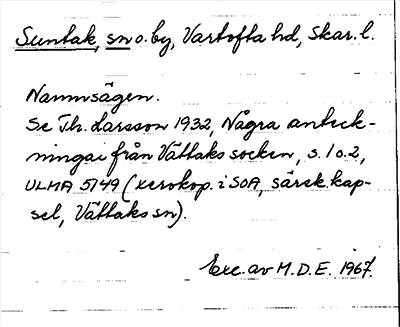 Suntak, sn o. by, Vartofta hd, Skar. l.
Namnsägen.
Se Th. Larsson 1932, Några anteck-
ningar från Vättaks socken, s. 1 o. 2,
ULMA 5149 (xerokop. i SOA, särsk. kap-
sel, Vättaks sn).
Exc. av M.D.E. 1967.